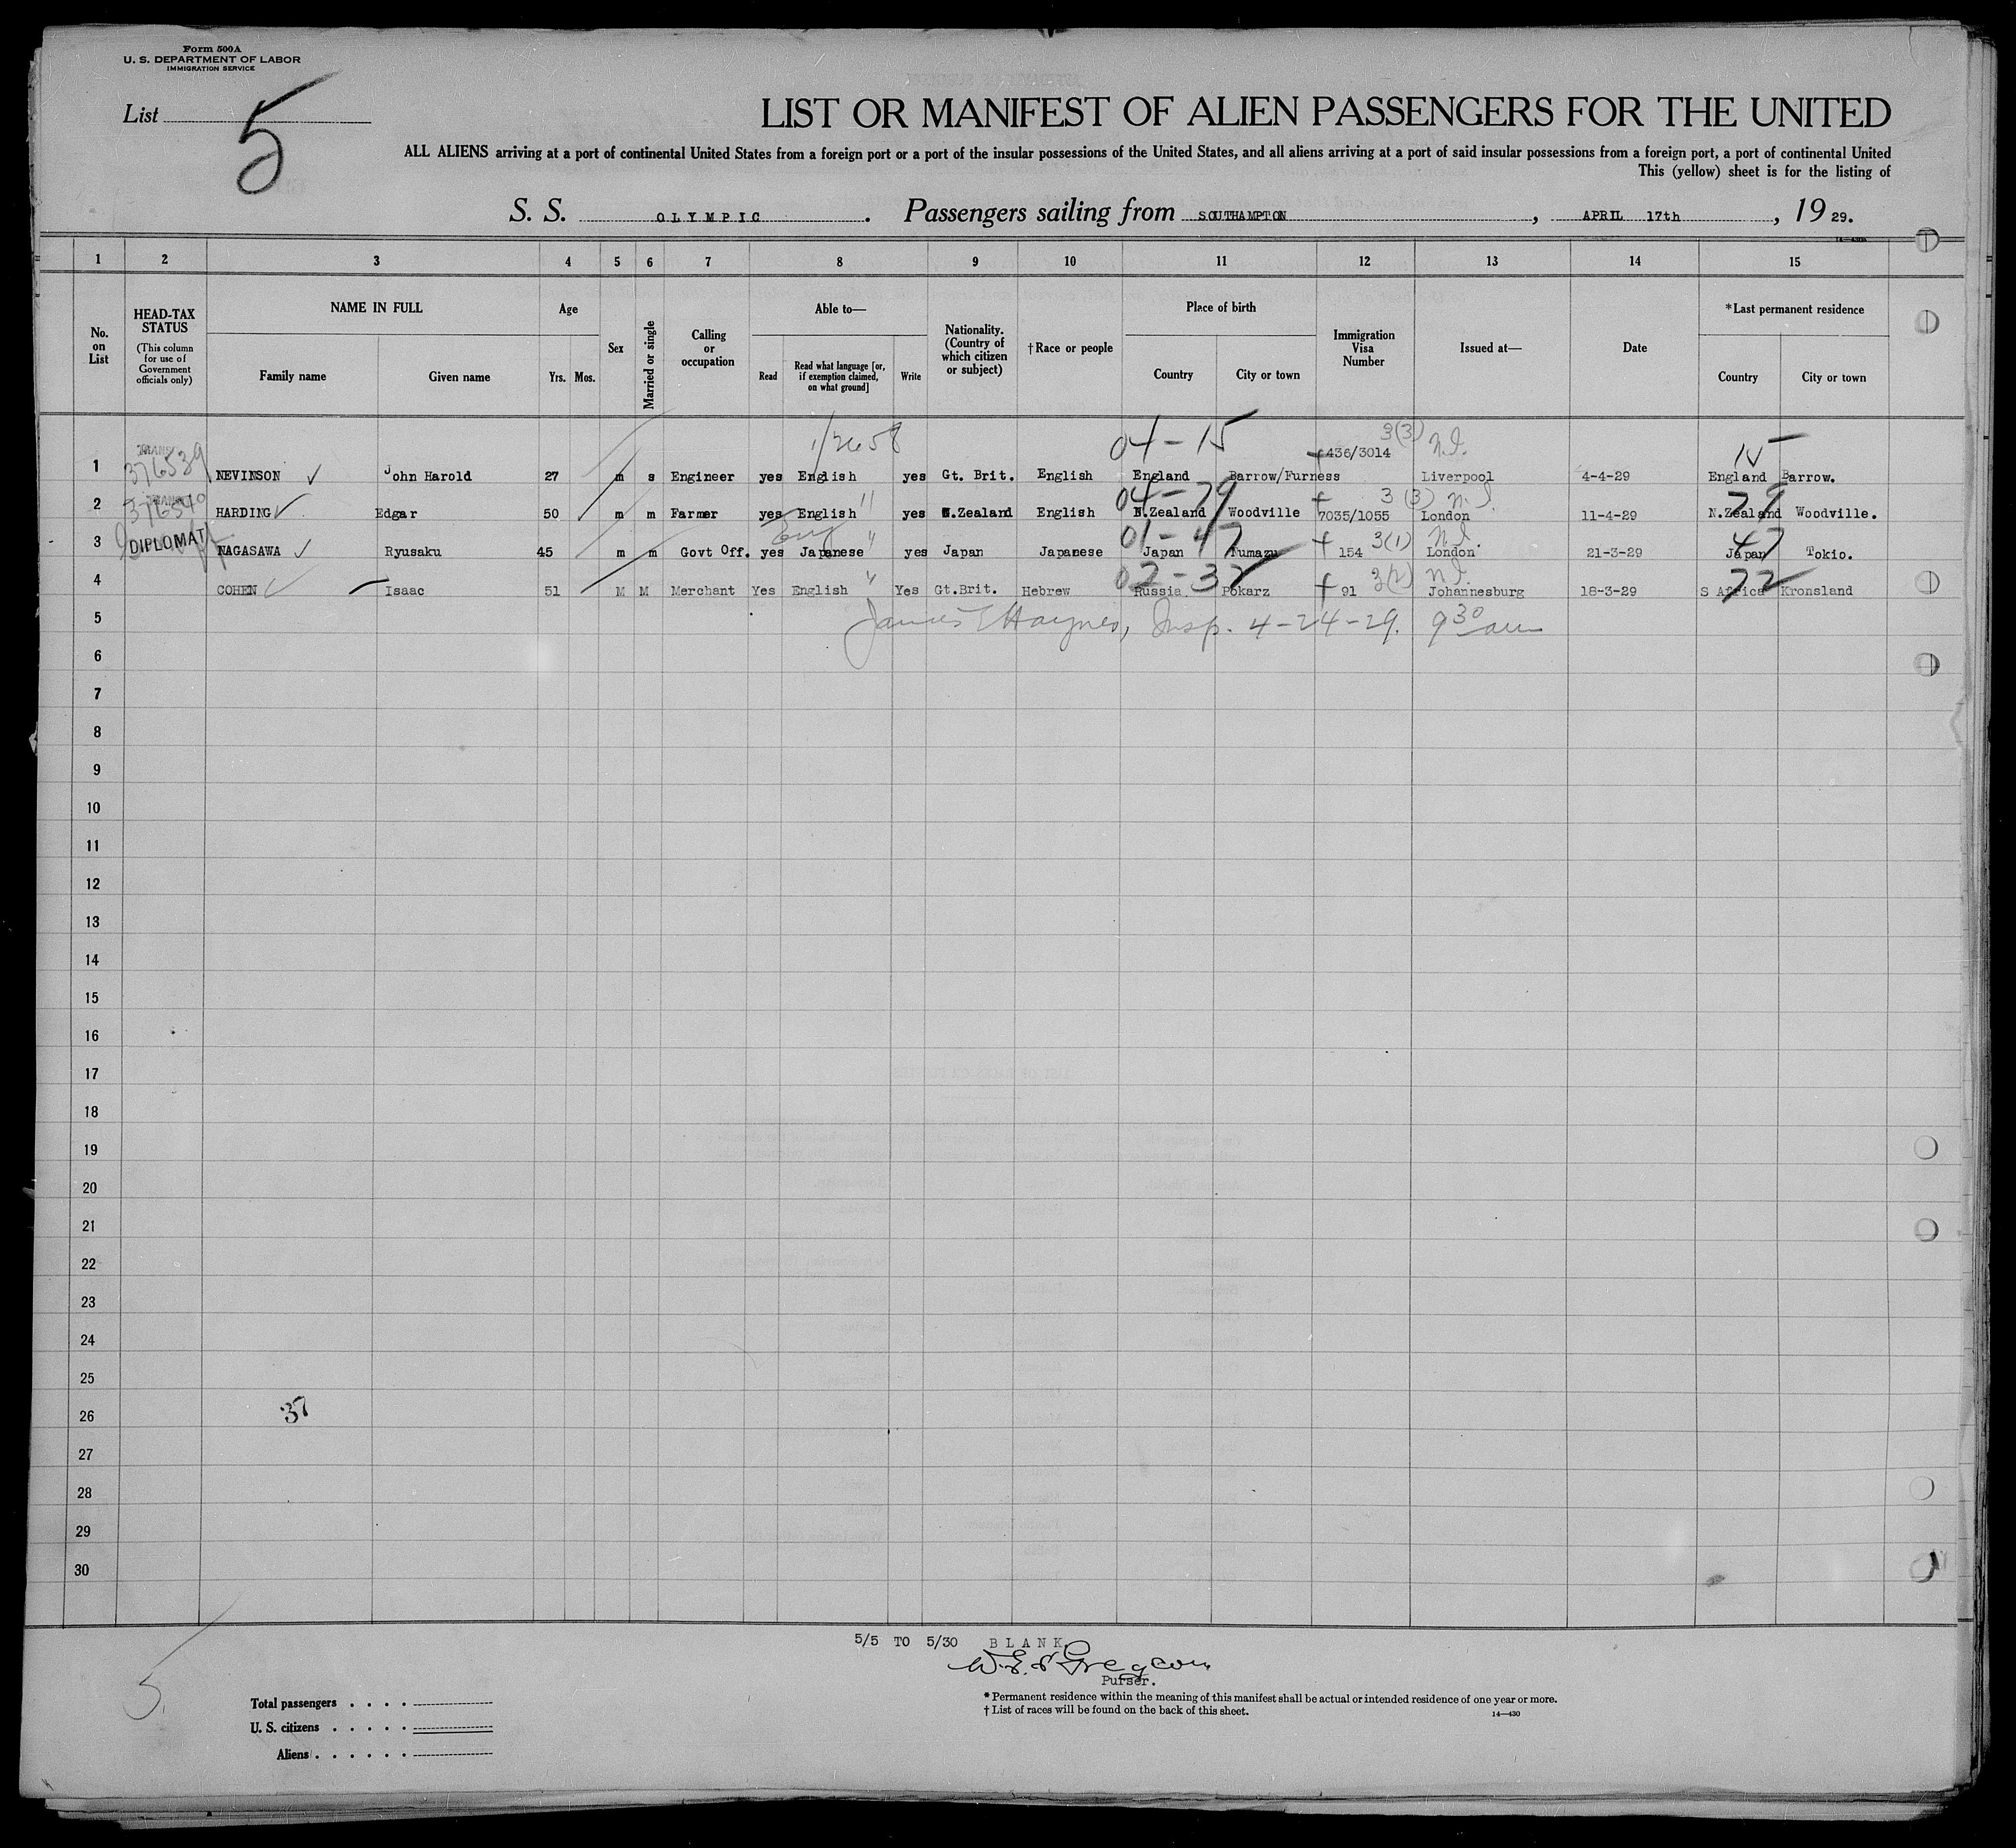 Form 500A
U. S. DEPARTMENT OF LABOR
IMMIGRATION SERVICE
List 5
LIST OR MANIFEST OF ALIEN PASSENGERS FOR THE UNITED
ALL ALIENS arriving at a port of continental United States from a foreign port or a port of the insular possessions of the United States, and all aliens arriving at a port of said insular possessions from a foreign port, a port of continental United
This (yellow) sheet is for the listing of
S. S. OLYMPIC. Passengers sailing from SOUTHAMPTON, APRIL 17th, 19 29.
1 2 3 4 5 6 7 8 9 10 11 12 13 14 15
No. on List
HEAD-TAX STATUS
(This column for use of Government officials only)
NAME IN FULL
Family name Given name
Age
Yrs. Mos.
Sex
Married or single
Calling or occupation
Able to—
Read
Read what language [or, if exemption claimed, on what ground]
Write
Nationality. (Country of which citizen or subject)
†Race or people
Place of birth
Country City or town
Immigration Visa Number
Issued at—
Date
*Last permanent residence
Country City or town
1/2658 04-15 3(3) N.I. 15
1 376539 NEVINSON ✓ John Harold 27 m s Engineer yes English yes Gt. Brit. English England Barrow/Furness 436/3014 Liverpool 4-4-29 England Barrow.
04-79 3(3) N.I. 79
2 376540 HARDING ✓ Edgar 50 m m Farmer yes English " yes N.Zealand English N.Zealand Woodville 7035/1055 London 11-4-29 N.Zealand Woodville.
Eng 01-47 3(1) N.I. 47
3 DIPLOMAT NAGASAWA ✓ Ryusaku 45 m m Govt Off. yes Japanese " yes Japan Japanese Japan Numazu 154 London 21-3-29 Japan Tokio.
02-32 3(2) N.I. 72
4 COHEN ✓ Isaac 51 M M Merchant Yes English " Yes Gt.Brit. Hebrew Russia Pokarz 91 Johannesburg 18-3-29 S Africa Kronsland
5 James E Haynes, Insp. 4-24-29. 9 30 am
6
7
8
9
10
11
12
13
14
15
16
17
18
19
20
21
22
23
24
25
26 37
27
28
29
30
5/5 TO 5/30 BLANK.
Purser.
5.
Total passengers
U. S. citizens
Aliens
*Permanent residence within the meaning of this manifest shall be actual or intended residence of one year or more.
†List of races will be found on the back of this sheet.
14—430